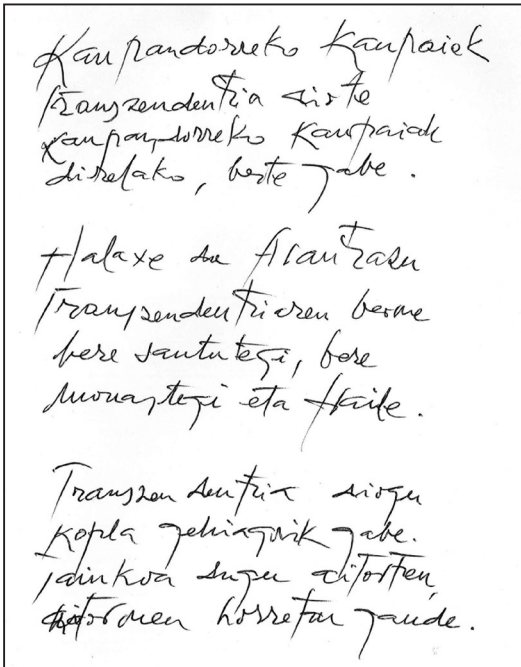 Kanpandorreko Kanpaiek
Transzendentzia diote
Kanpandorreko Kanpaiak
direlako, beste gabe.
Halaxe da Arantzazu
Transzendentziaren berme
bere santutegi, bere
monastegi eta fraile.
Transzendentzia diogu
kopla gehiagorik gabe.
jainkoa dugu aitortzen,
aitormen horretan gaude.